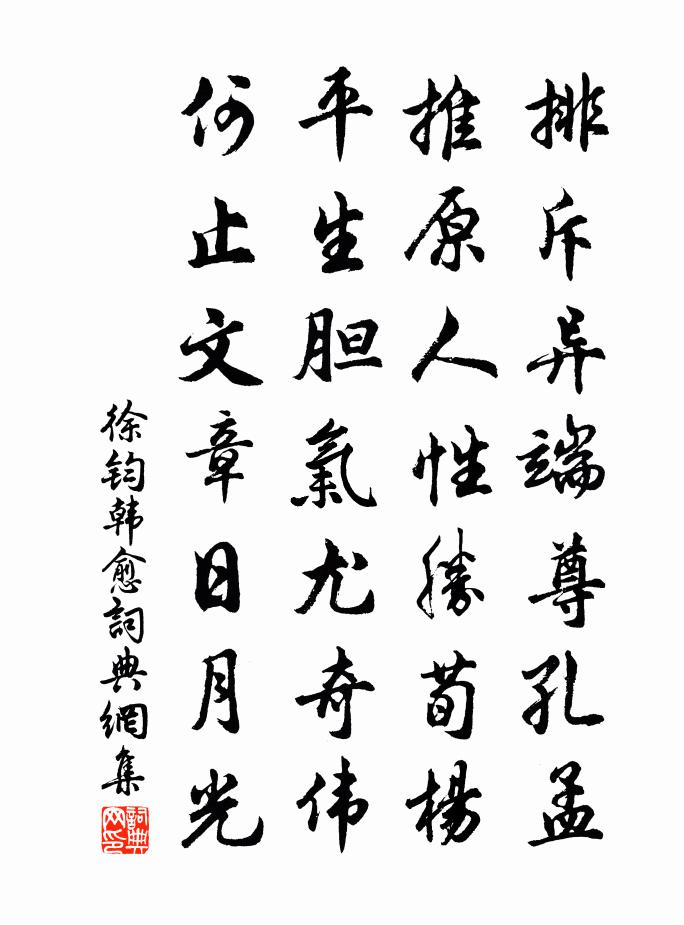 排斥异端尊孔孟
推原人性勝荀楊
平生胆氣尤奇伟
何止文章日月光
徐钧韩愈詞典網集
詞典网印